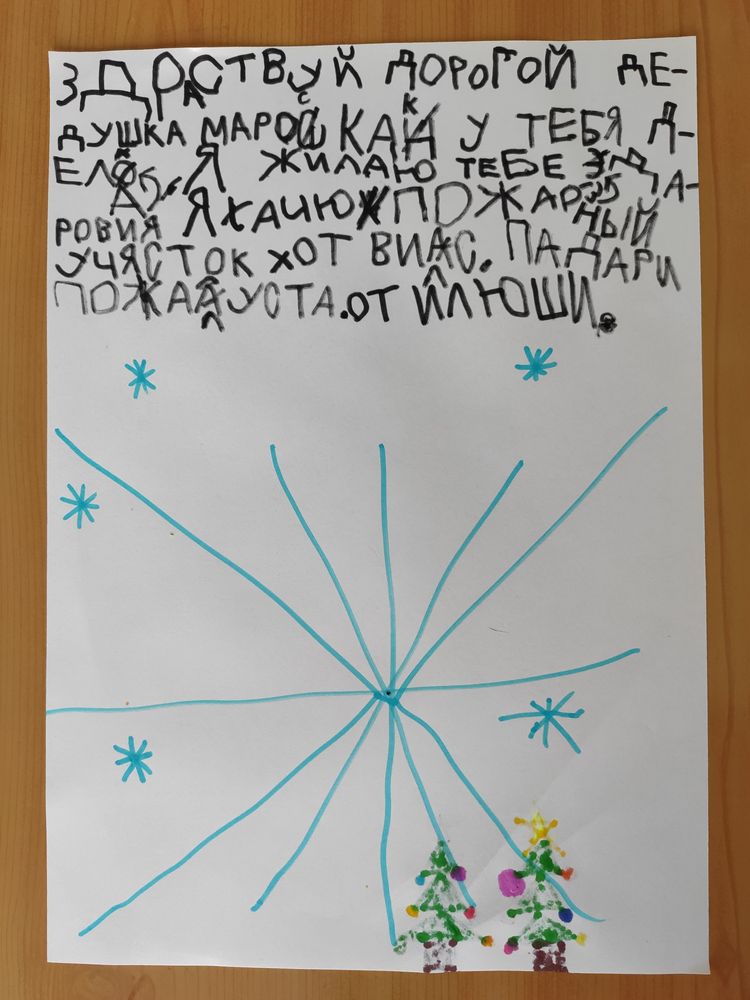 ЗДРАСТВУЙ ДОРОГОЙ ДЕ-
ДУШКА МАРОС КАК У ТЕБЯ Д-
ЕЛА. Я ЖИЛАЮ ТЕБЕ ЗДА-
РОВИЯ Я ХАЧЮ ПОЖАРНЫЙ
УЧЯСТОК ХОТ ВИЛС. ПАДАРИ
ПОЖАЛУСТА. ОТ ИЛЮШИ.